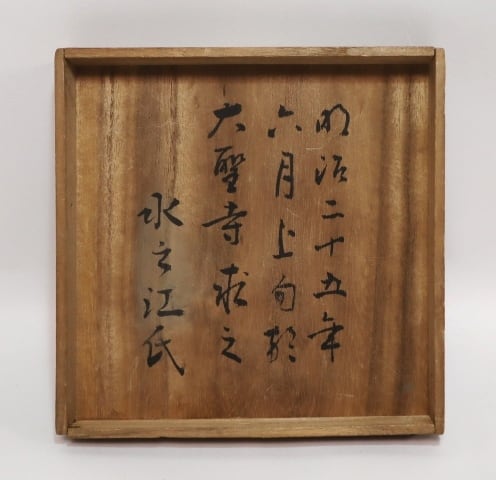 明治二十五年
六月上旬於
大聖寺求之
水之江氏